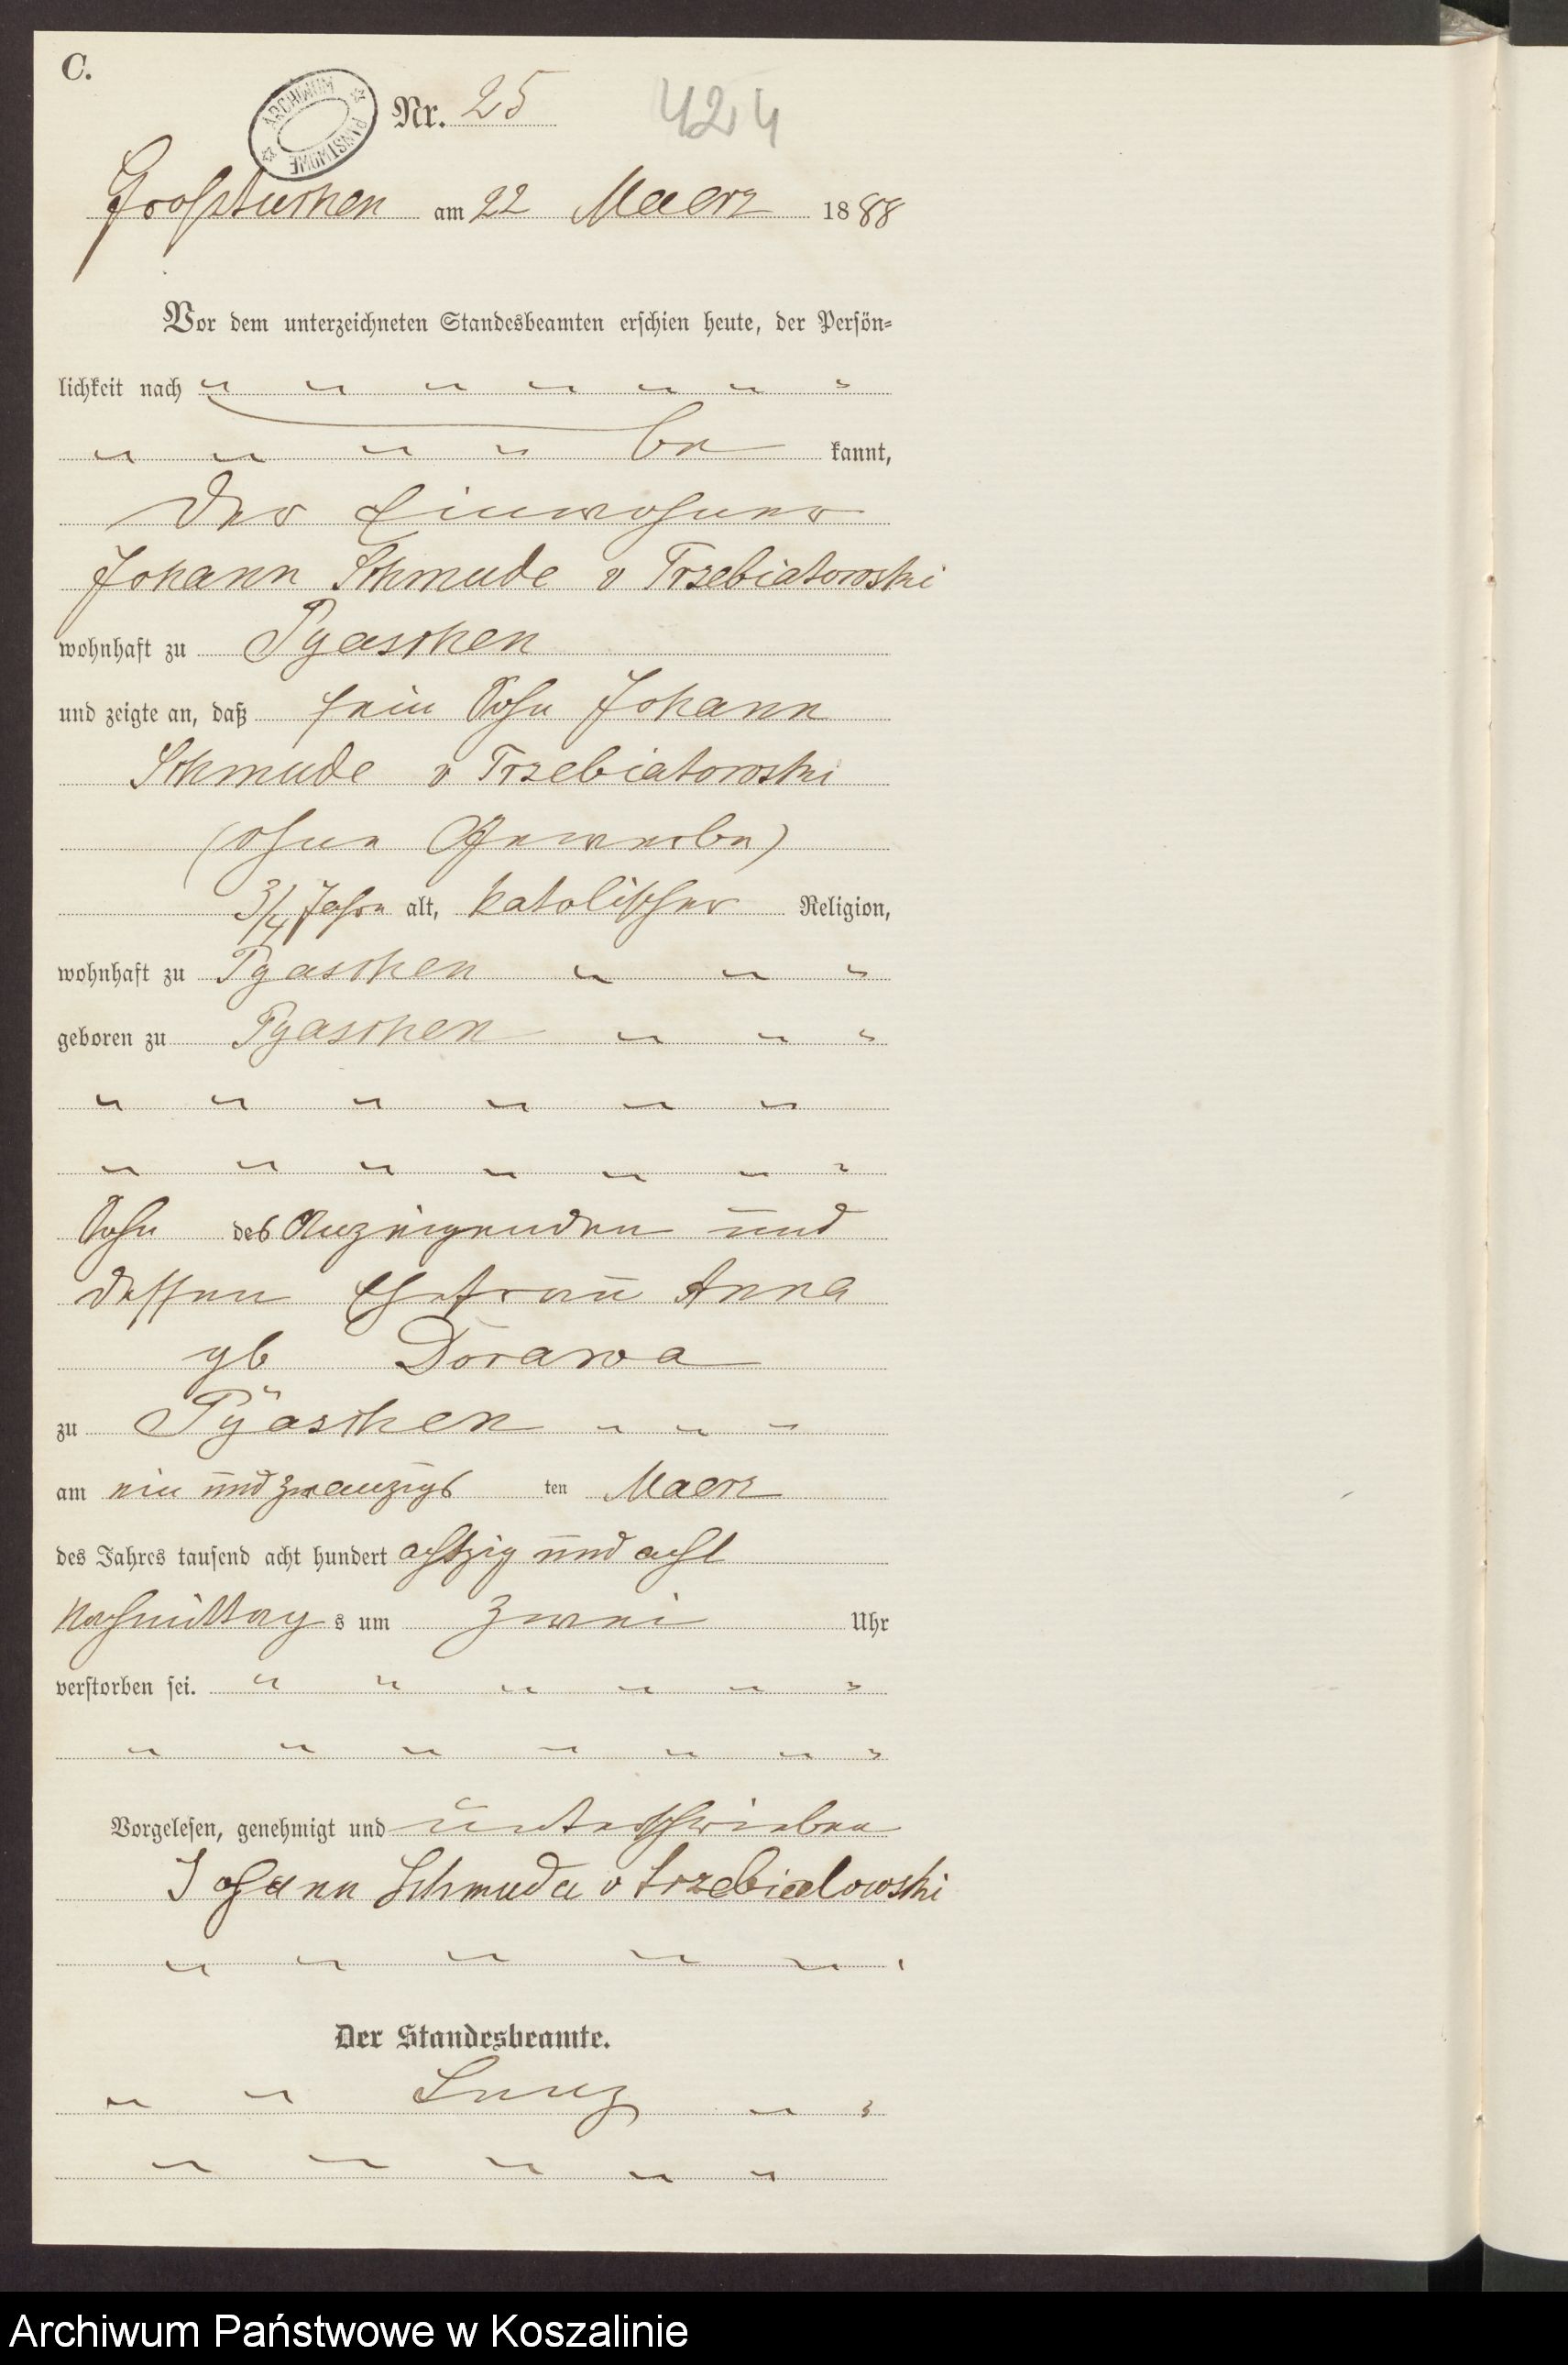 C.
ARCHIWUM PAŃSTWOWE
Nr. 25
424
Großtuchen am 22 Maerz 1888
Vor dem unterzeichneten Standesbeamten erschien heute, der Persön-
lichkeit nach
be kannt,
der Einwohner
Johann Schmude v Trzebiatowski
wohnhaft zu Pyaschen
und zeigte an, daß sein Sohn Johann
Schmude v Trzebiatowski
(ohne Gewerbe)
3/4 Jahre alt, katolischer Religion,
wohnhaft zu Pyaschen
geboren zu Pyaschen
Sohn des Anzeigenden und
dessen Ehefrau Anna
gb Dorawa
zu Pÿaschen
am ein und zwanzigs ten Maerz
des Jahres tausend acht hundert achtzig und acht
Nachmittag s um zwei Uhr
verstorben sei.
Vorgelesen, genehmigt und unterschrieben
Johann Schmude v Trzebiatowski
Der Standesbeamte.
Archiwum Państwowe w Koszalinie